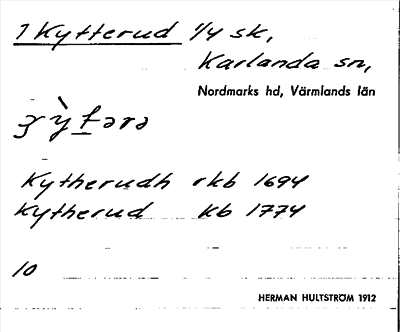 1 Kytterud 1/4 sk,
Karlanda sn,
Nordmarks hd, Värmlands län
Kytherudh rkb 1694
Kytherud kb 1774
10
HERMAN HULTSTRÖM 1912